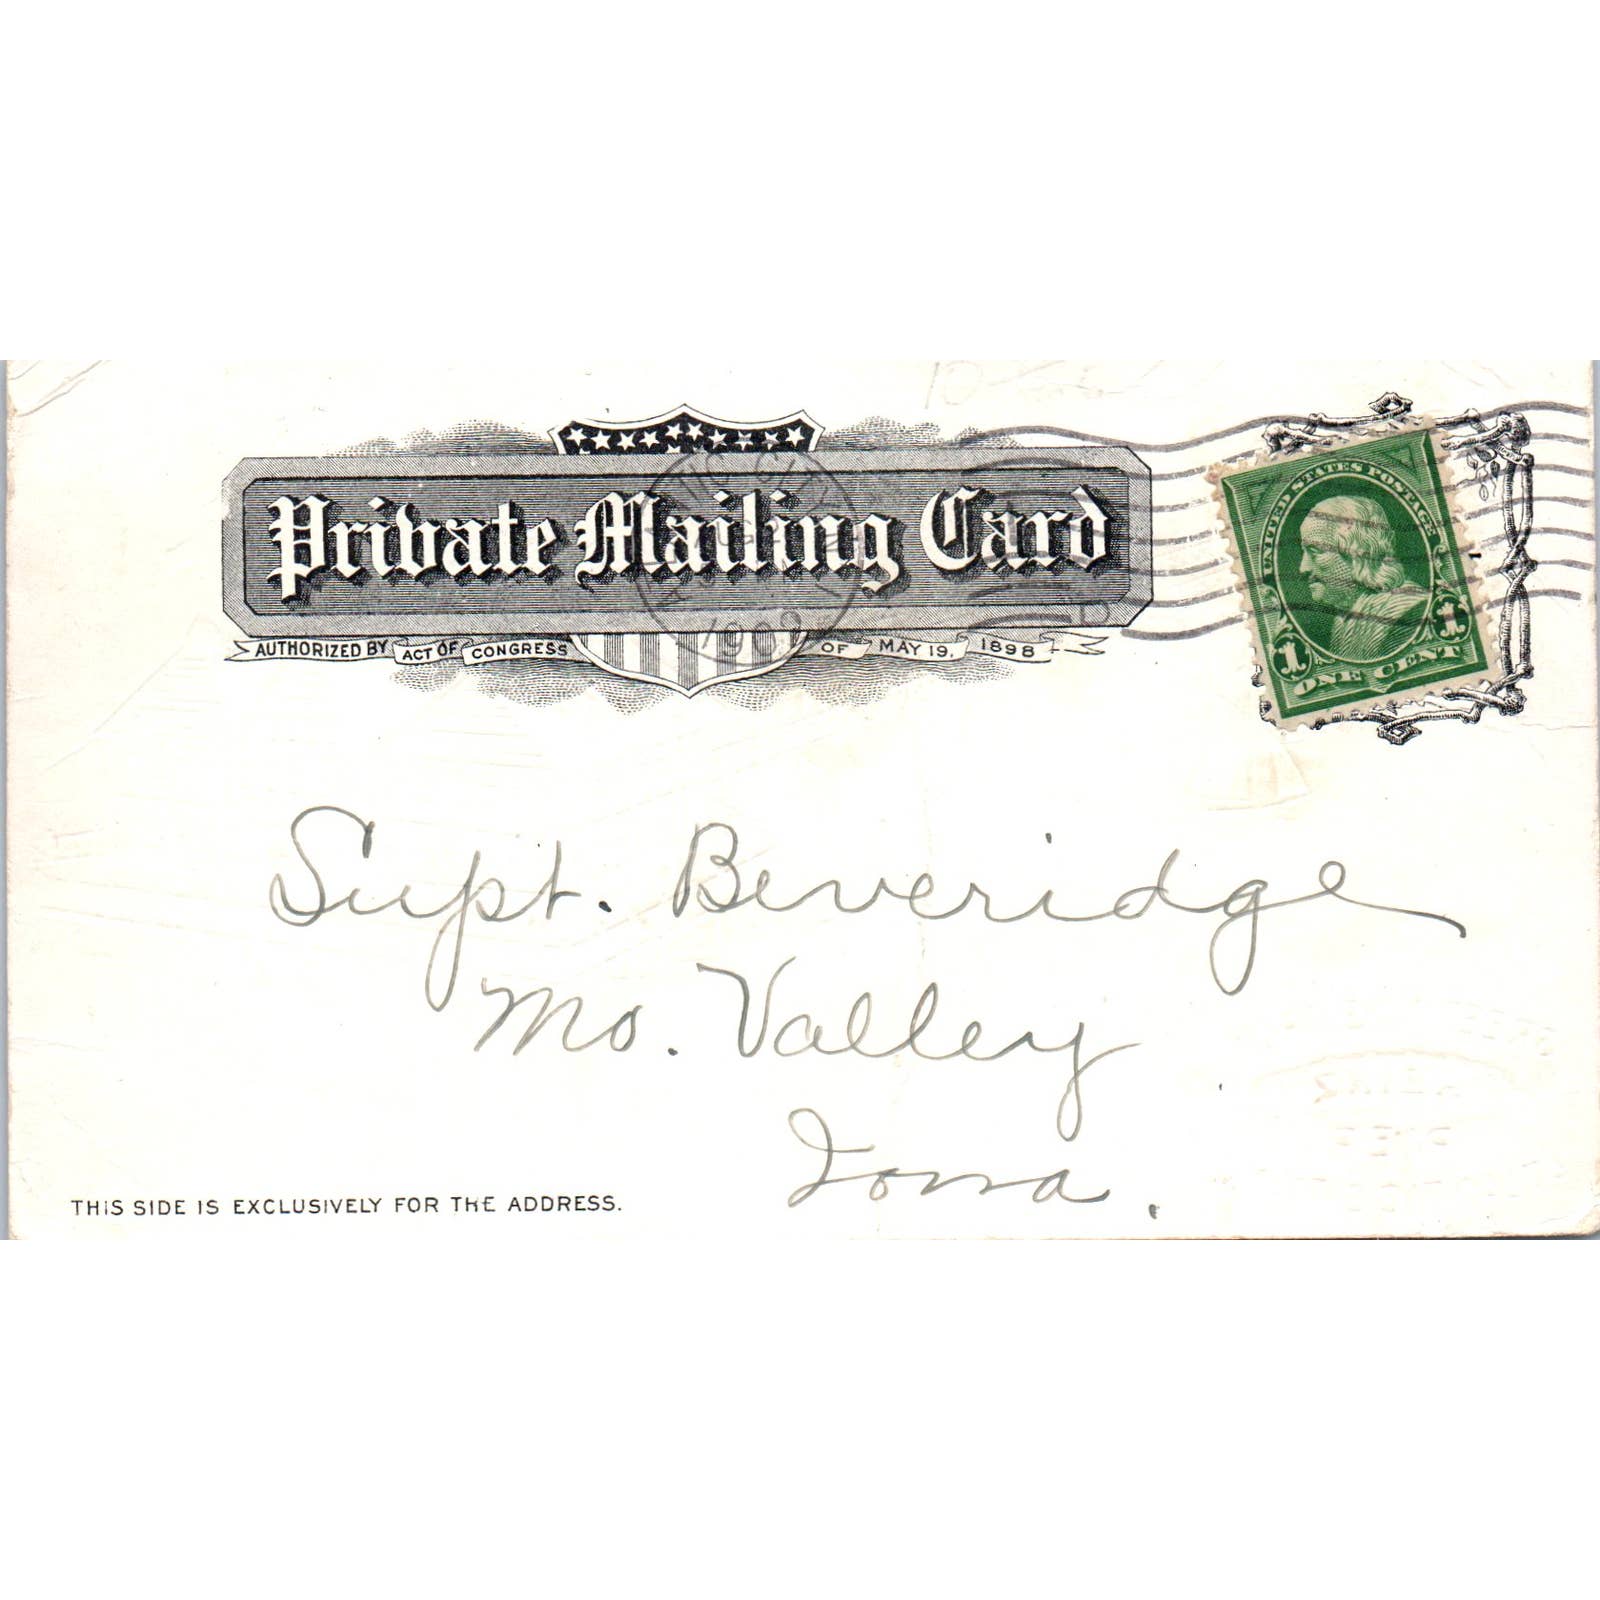 Private Mailing Card
AUTHORIZED BY ACT OF CONGRESS OF MAY 19, 1898
UNITED STATES POSTAGE
1 1
ONE CENT
Supt. Beveridge
Mo. Valley
Iowa.
THIS SIDE IS EXCLUSIVELY FOR THE ADDRESS.